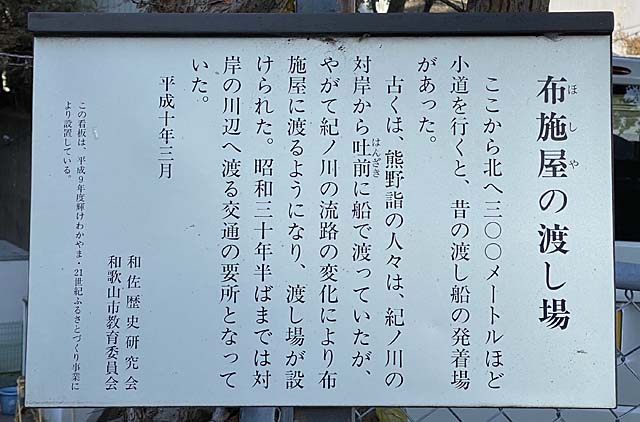 布施屋の渡し場
ほしや
ここから北へ三〇〇メートルほど
小道を行くと、昔の渡し船の発着場
があった。
古くは、熊野詣の人々は、紀ノ川の
対岸から吐前に船で渡っていたが、
はんざき
やがて紀ノ川の流路の変化により布
施屋に渡るようになり、渡し場が設
けられた。昭和三十年半ばまでは対
岸の川辺へ渡る交通の要所となって
いた。
平成十年三月
和佐歴史研究会
和歌山市教育委員会
この看板は、平成9年度輝けわかやま・21世紀ふるさとづくり事業に
より設置している。